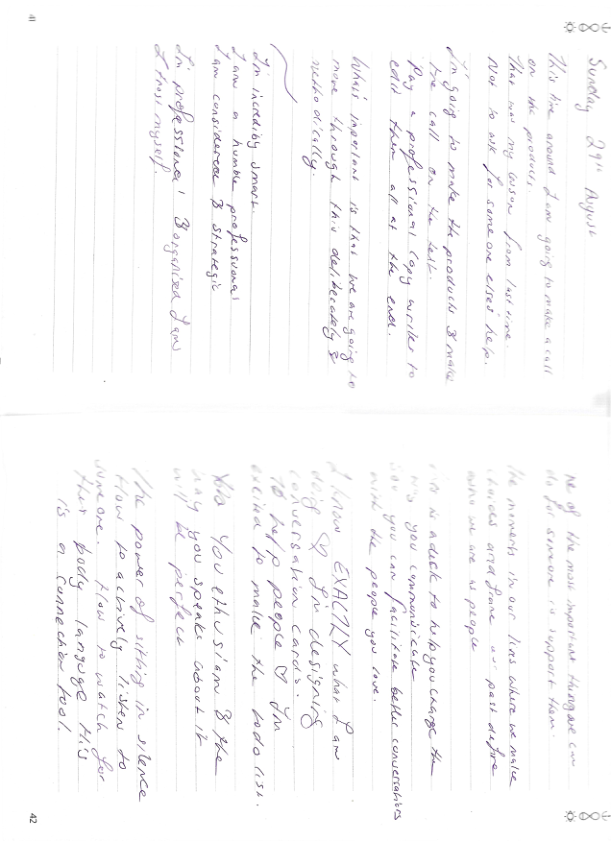 41
Sunday 29th August
This time around I am going to make a call
on the products.
That was my lesson from last time.
Not to ask for someone elses help.
I'm going to make the products & make
the call on the best.
Pay a professional copy writer to
edit them all at the end.
Whats important is that we are going to
move through this deliberately &
methodically.
I'm incredibly smart.
I am a humble professional
I am considered & strategic
I'm professional & organised I am
I trust myself.
42
ne of the most important things we can
do for someone is support them.
The moments in our lives where we make
choices and from our past define
who we are as people
is a deck to help you change the
way you communicate
how you can facilitate better conversations
with the people you love.
I know EXACTLY what I am
doing I'm designing
conversation cards.
To help people I'm
excited to make the todo list.
You ethusiam & the
way you speak about it
will be perfect
The power of sitting in silence
How to actively listen to
someone. How to watch for
their body language this
is a connection tool.